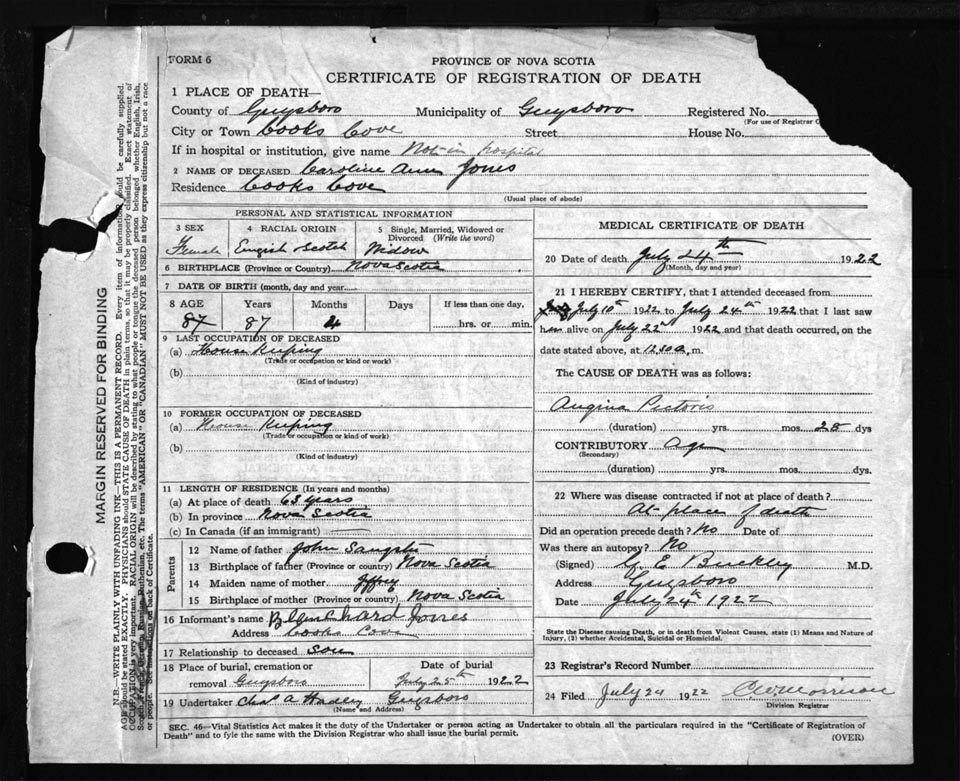 FORM 6
PROVINCE OF NOVA SCOTIA
CERTIFICATE OF REGISTRATION OF DEATH
1 PLACE OF DEATH—
County of Guysboro Municipality of Guysboro Registered No.
(For use of Registrar O
City or Town Cooks Cove Street House No.
If in hospital or institution, give name Not in hospital
2 NAME OF DECEASED Caroline Ann Jones
Residence Cooks Cove
(Usual place of abode)
PERSONAL AND STATISTICAL INFORMATION
3 SEX 4 RACIAL ORIGIN 5 Single, Married, Widowed or Divorced (Write the word)
Female Engish Scotch Widow
6 BIRTHPLACE (Province or Country) Nova Scotia
7 DATE OF BIRTH (month, day and year
8 AGE Years Months Days If less than one day,
87 87 4 hrs. or min.
9 LAST OCCUPATION OF DECEASED
(a) House Kuping
(Trade or occupation or kind of work)
(b)
(Kind of industry)
10 FORMER OCCUPATION OF DECEASED
(a) House Kuping
(Trade or occupation or kind of work)
(b)
(Kind of industry)
11 LENGTH OF RESIDENCE (In years and months)
(a) At place of death 63 years
(b) In province Nova Scotia
(c) In Canada (if an immigrant)
Parents
12 Name of father John Sangster
13 Birthplace of father (Province or country) Nova Scotia
14 Maiden name of mother
15 Birthplace of mother (Province or country) Nova Scotia
16 Informant's name Blanchard Jones
Address Cooks Cove
17 Relationship to deceased son
18 Place of burial, cremation or removal Guysboro Date of burial July 25th 1922
19 Undertaker Chas A Hadley Guysboro
(Name and Address)
MEDICAL CERTIFICATE OF DEATH
20 Date of death July 24th 1922
(Month, day and year)
21 I HEREBY CERTIFY, that I attended deceased from
July 10th 1922 to July 24th 1922 that I last saw
h alive on July 22nd 1922 and that death occurred, on the
date stated above, at 12.30 a, m.
The CAUSE OF DEATH was as follows:
Angina Pectoris
(duration) yrs. mos. 28 dys
CONTRIBUTORY Age
(Secondary)
(duration) yrs. mos. dys.
22 Where was disease contracted if not at place of death?
At place of death
Did an operation precede death? No Date of
Was there an autopsy? No
(Signed) G. E. Buckley M.D.
Address Guysboro
Date July 24th 1922
State the Disease causing Death, or in death from Violent Causes, state (1) Means and Nature of
Injury, (2) whether Accidental, Suicidal or Homicidal.
23 Registrar's Record Number
24 Filed July 24 1922 C W Morrison
Division Registrar
SEC. 46—Vital Statistics Act makes it the duty of the Undertaker or person acting as Undertaker to obtain all the particulars required in the "Certificate of Registration of
Death" and to fyle the same with the Division Registrar who shall issue the burial permit.
(OVER)
MARGIN RESERVED FOR BINDING
N.B.—WRITE PLAINLY WITH UNFADING INK—THIS IS A PERMANENT RECORD. Every item of information should be carefully supplied.
AGE should be stated EXACTLY. PHYSICIANS should STATE CAUSE OF DEATH in plain terms, so that it may be properly classified. Exact statement of
OCCUPATION is very important. RACIAL ORIGIN will be described by stating to what people or tongue the deceased person belonged whether English, Irish,
Ruthenian, etc. The terms "AMERICAN" OR "CANADIAN" MUST NOT BE USED as they express citizenship but not a race
or people. See instructions on back of Certificate.